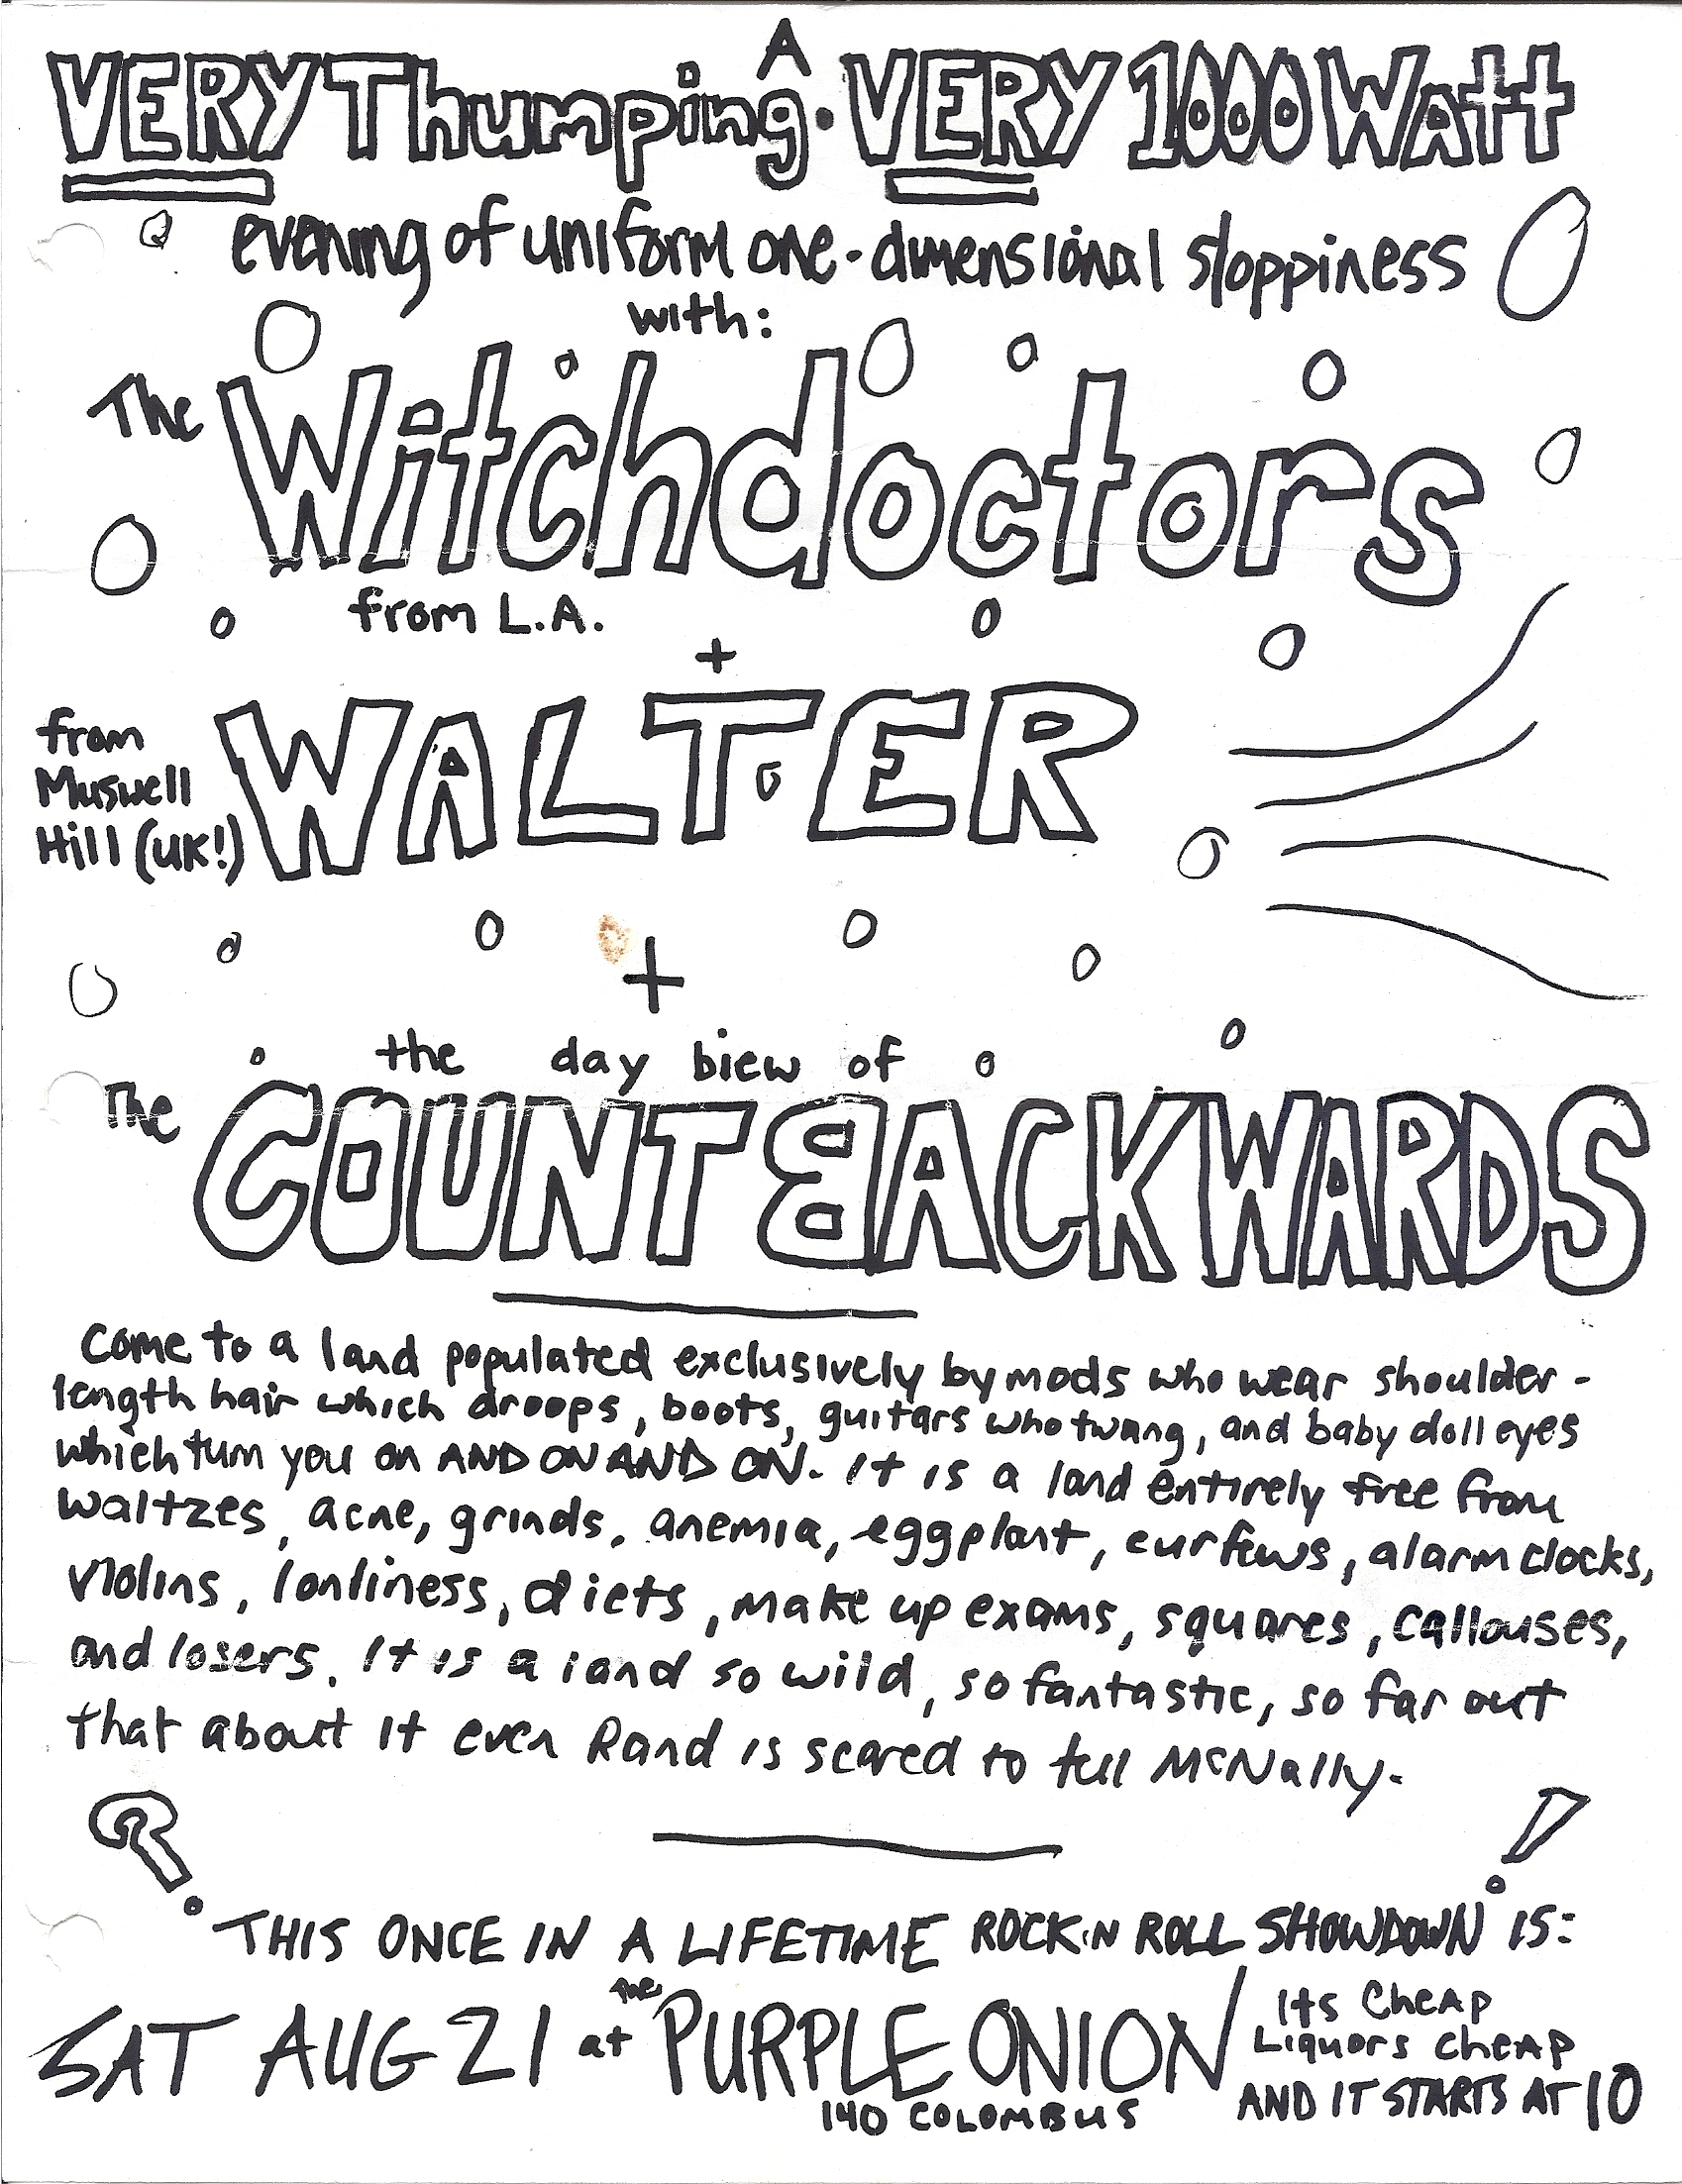 VERY Thumping. A VERY 1000 WAtt
evening of uniform one-dimensional sloppiness
with:
The Witchdoctors
from L.A.
+
from
Muswell
Hill (UK!)
WALTER
+
the day biew of
The COUNT BACKWARDS
Come to a land populated exclusively by mods who wear shoulder-
length hair which droops, boots, guitars who twang, and baby doll eyes
which turn you on AND ON AND ON. It is a land entirely free from
waltzes, acne, grinds, anemia, eggplant, curfews, alarm clocks,
violins, lonliness, diets, make up exams, squares, callouses,
and losers. It is a land so wild, so fantastic, so far out
that about it even Rand is scared to tell McNally.
? !
THIS ONCE IN A LIFETIME ROCK'N ROLL SHOWDOWN IS:
SAT AUG 21 at the PURPLE ONION
140 COLOMBUS
Its CheAp
Liquors cheAp
AND IT STARTS AT 10